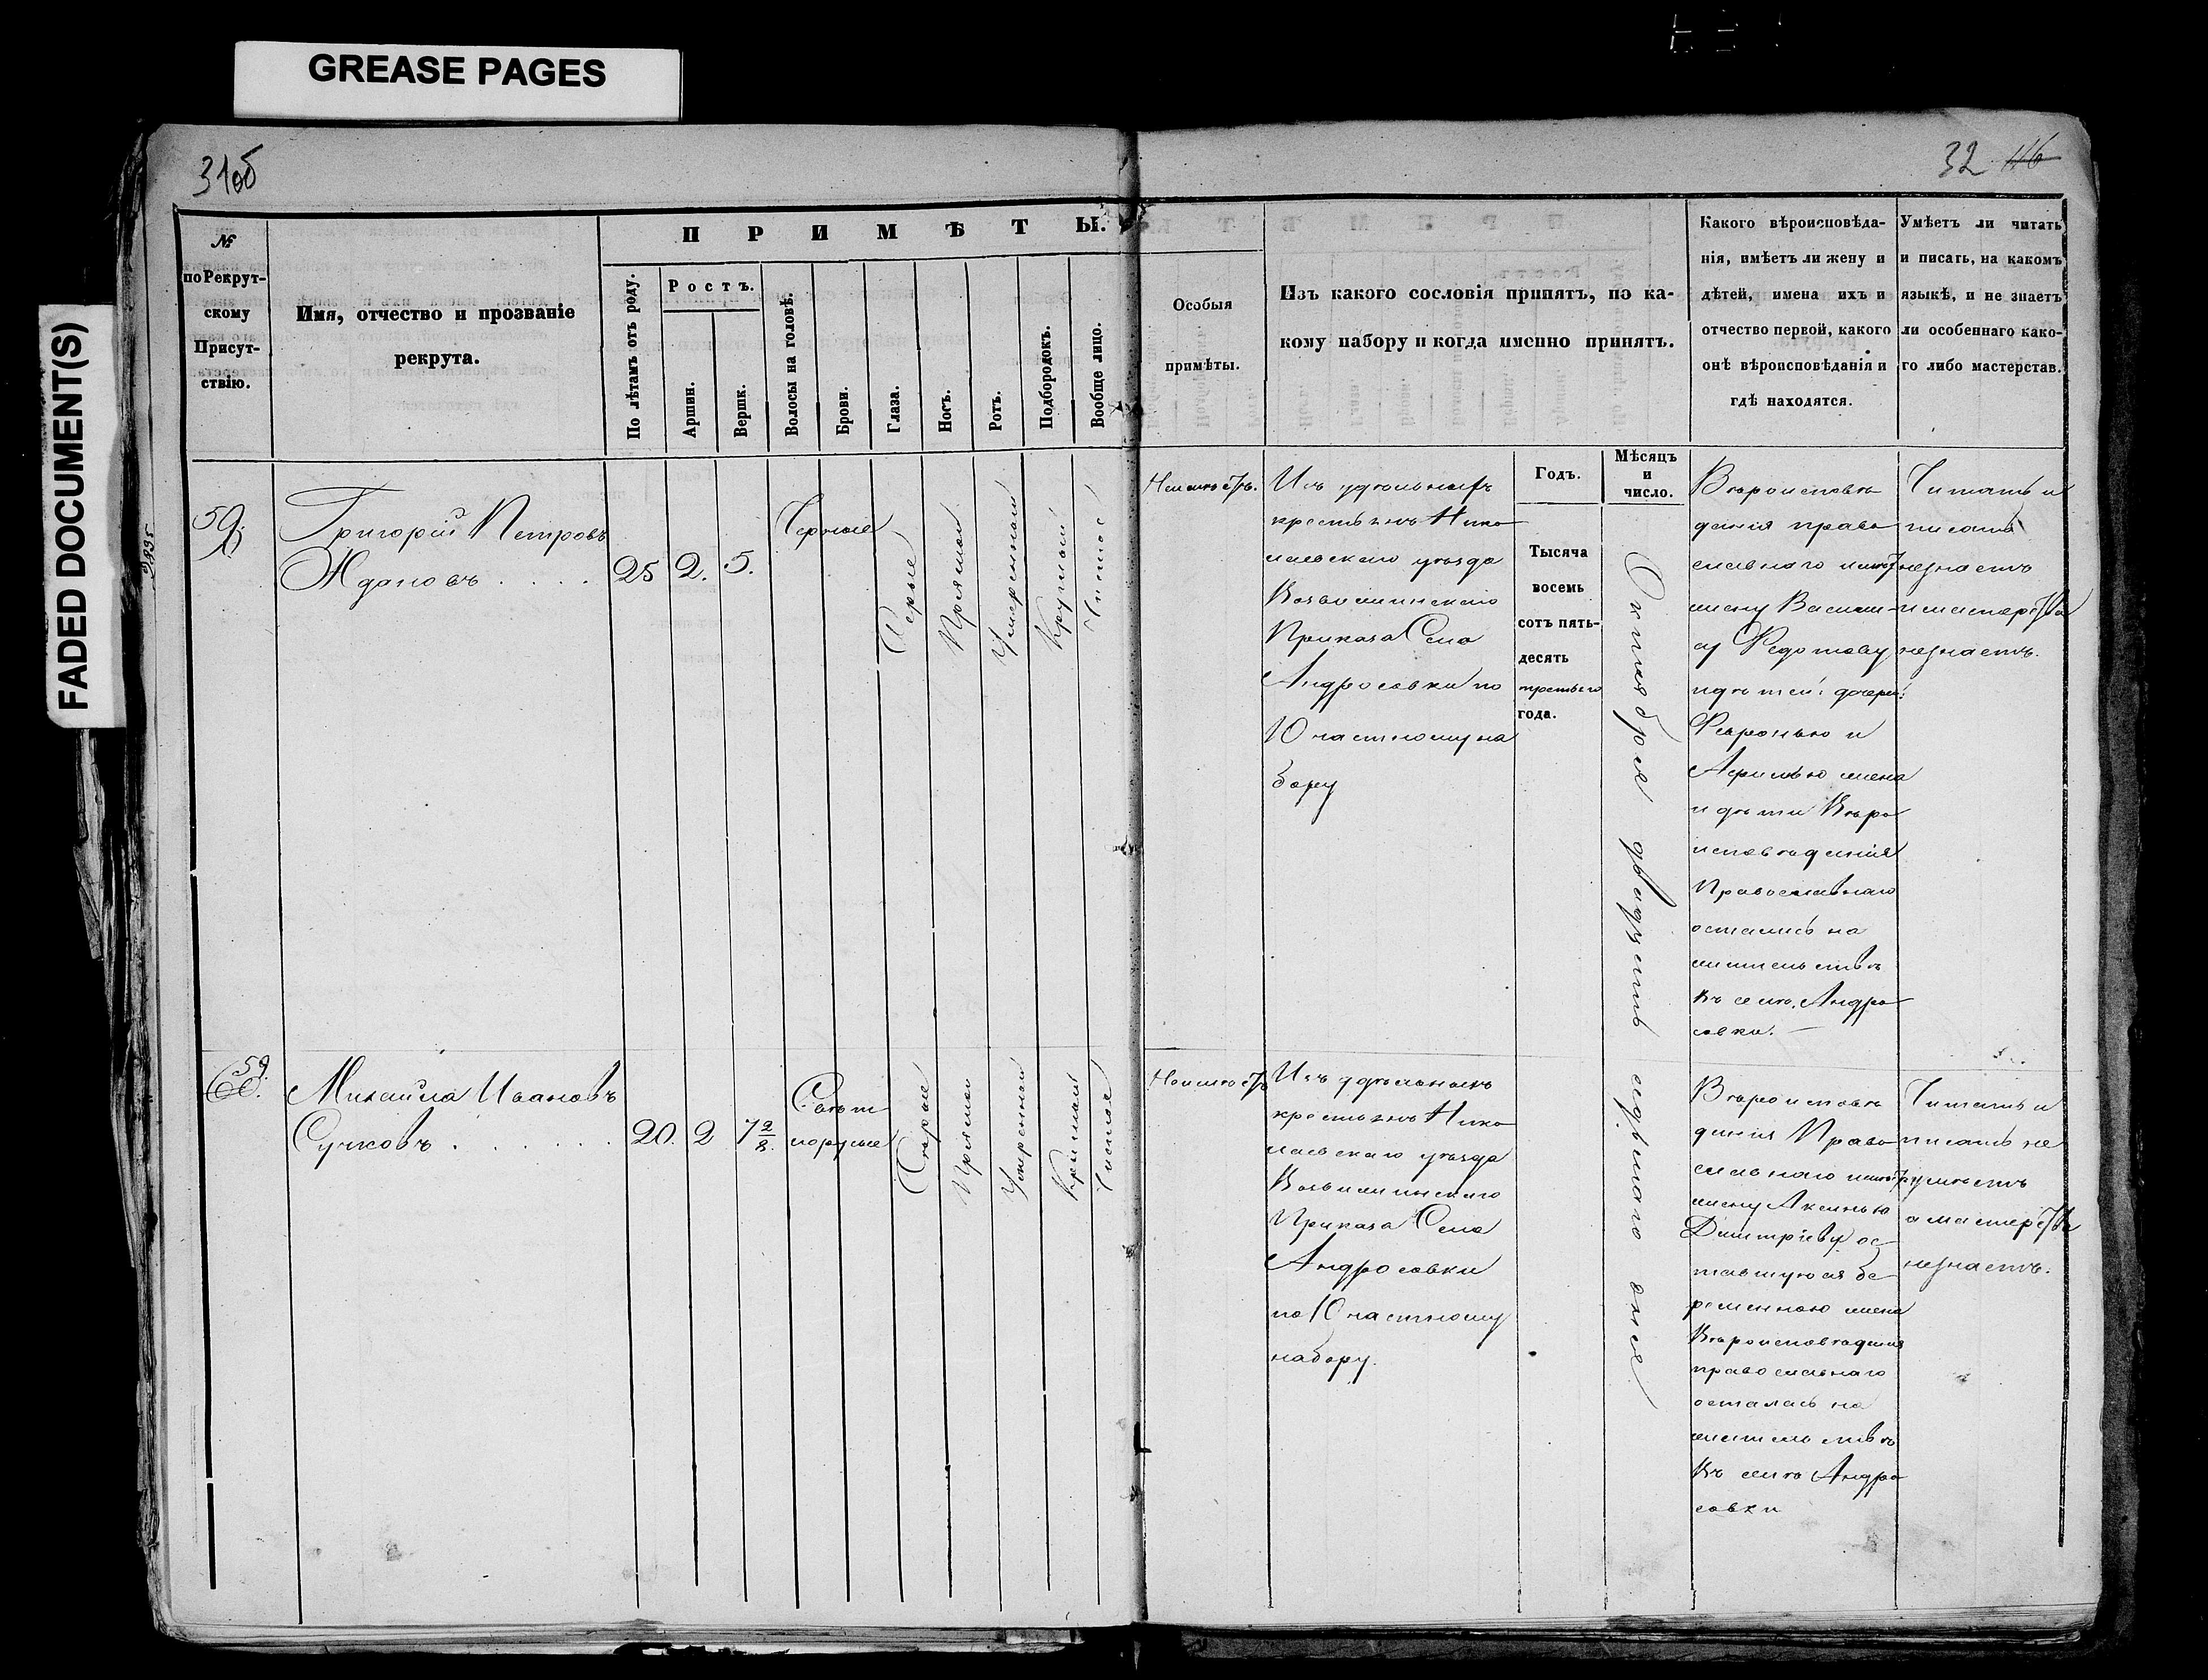 GREASE PAGES
FADED DOCUMENT(S)
31об
32 116
№
по Рекрут-
скому
Присут-
ствію.
Имя, отчество и прозваніе
рекрута.
ПРИМѢТЫ.
По лѣтамъ отъ роду.
Ростъ.
Аршин.
Вершк.
Волосы на головѣ.
Брови.
Глаза.
Носъ.
Ротъ.
Подбородокъ.
Вообще лицо.
Особыя
примѣты.
Изъ какого сословія принятъ, по ка-
кому набору и когда именно принятъ.
Какого вѣроисповѣда-
нія, имѣетъ ли жену и
дѣтей, имена ихъ и
отчество первой, какого
онѣ вѣроисповѣданія и
гдѣ находятся.
Умѣетъ ли читать
и писать, на какомъ
языкѣ, и не знаетъ
ли особеннаго како-
го либо мастерстав.
Годъ.
Мѣсяцъ
и
число.
59.
Григорій Петровъ
Ждановъ
25
2.
5.
Черные
Сѣрые
Прямой
Умеренный
Круглый
Чистое
Изъ удѣльныхъ
крестьянъ Нико
лаевскаго уѣзда
Приказа Села
Андросовки по
10 частному на
бору
Тысяча
восемь
сотъ пять-
десять
третьяго
года.
Октября двадцать седьмаго дня
Вѣроисповѣ
данія право
славнаго имѣетъ
жену Васили-
су Федотову
и дѣтей: дочерей:
Февронью и
жена
и дѣти Вѣро
исповѣданія
Православнаго
остались на
жительствѣ
въ селѣ Андро
совки.
Читать и
писать
незнаетъ
и мастерства
незнаетъ.
59.
60.
Михайла Ивановъ
Сучковъ
20.
2
7 2/8
Свѣт
лорусые
Сѣрые
Прямой
Умеренный
Круглый
Чистое
Изъ удѣльныхъ
крестьянъ Нико
лаевскаго уѣзда
Приказа Села
Андросовки
по 10 частному
набору.
Вѣроисповѣ
данія Право
славнаго имѣетъ
жену Аксинью
Дмитріеву ос
тавшуюся бе
ременною жена
Вѣроисповѣданія
православнаго
осталась на
жительствѣ
въ селѣ Андро
совки
Читать и
писать не
умѣетъ
а мастерства
незнаетъ.